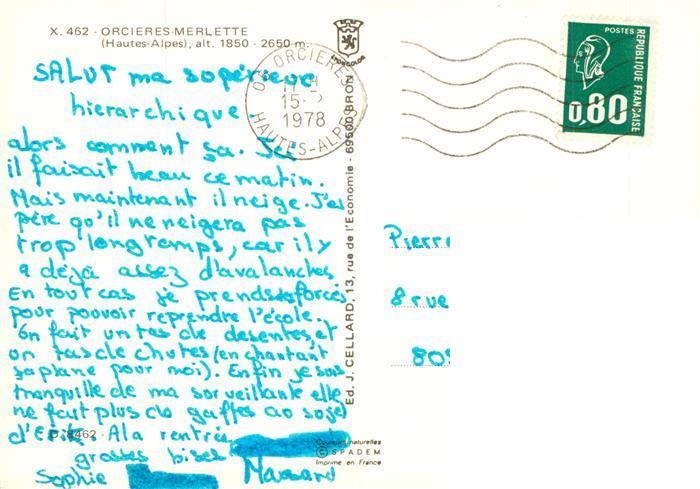 X. 462 - ORCIERES-MERLETTE
(Hautes-Alpes), alt. 1850 - 2650 m.
SALUT ma supérieure
hierarchique.
alors comment sa. Ici
il faisait beau ce matin.
Mais maintenant il neige. J'es
père qu'il ne neigera pas
trop longtemps, car il y
a déjà assez d'avalanches.
En tout cas je prends des forces
pour pouvoir reprendre l'école.
On fait un tas de desentes, et
un tas de chutes (en chantant
sa plane pour moi). Enfin je suis
tranquille de ma sorveillante elle
ne fait plus de gaffes ao sojet
d'Eric. A la rentrée
grosses bises
Sophie
Massard
D. 8462
05 ORCIERES
15-
1978
HAUTES-ALPES
LYON COLOR
Ed. J. CELLARD, 13, rue de l'Economie - 69500 BRON
Couleurs naturelles
© SPADEM
Imprimé en France
POSTES
REPUBLIQUE FRANÇAISE
0,80
Pierre
8 rue
80